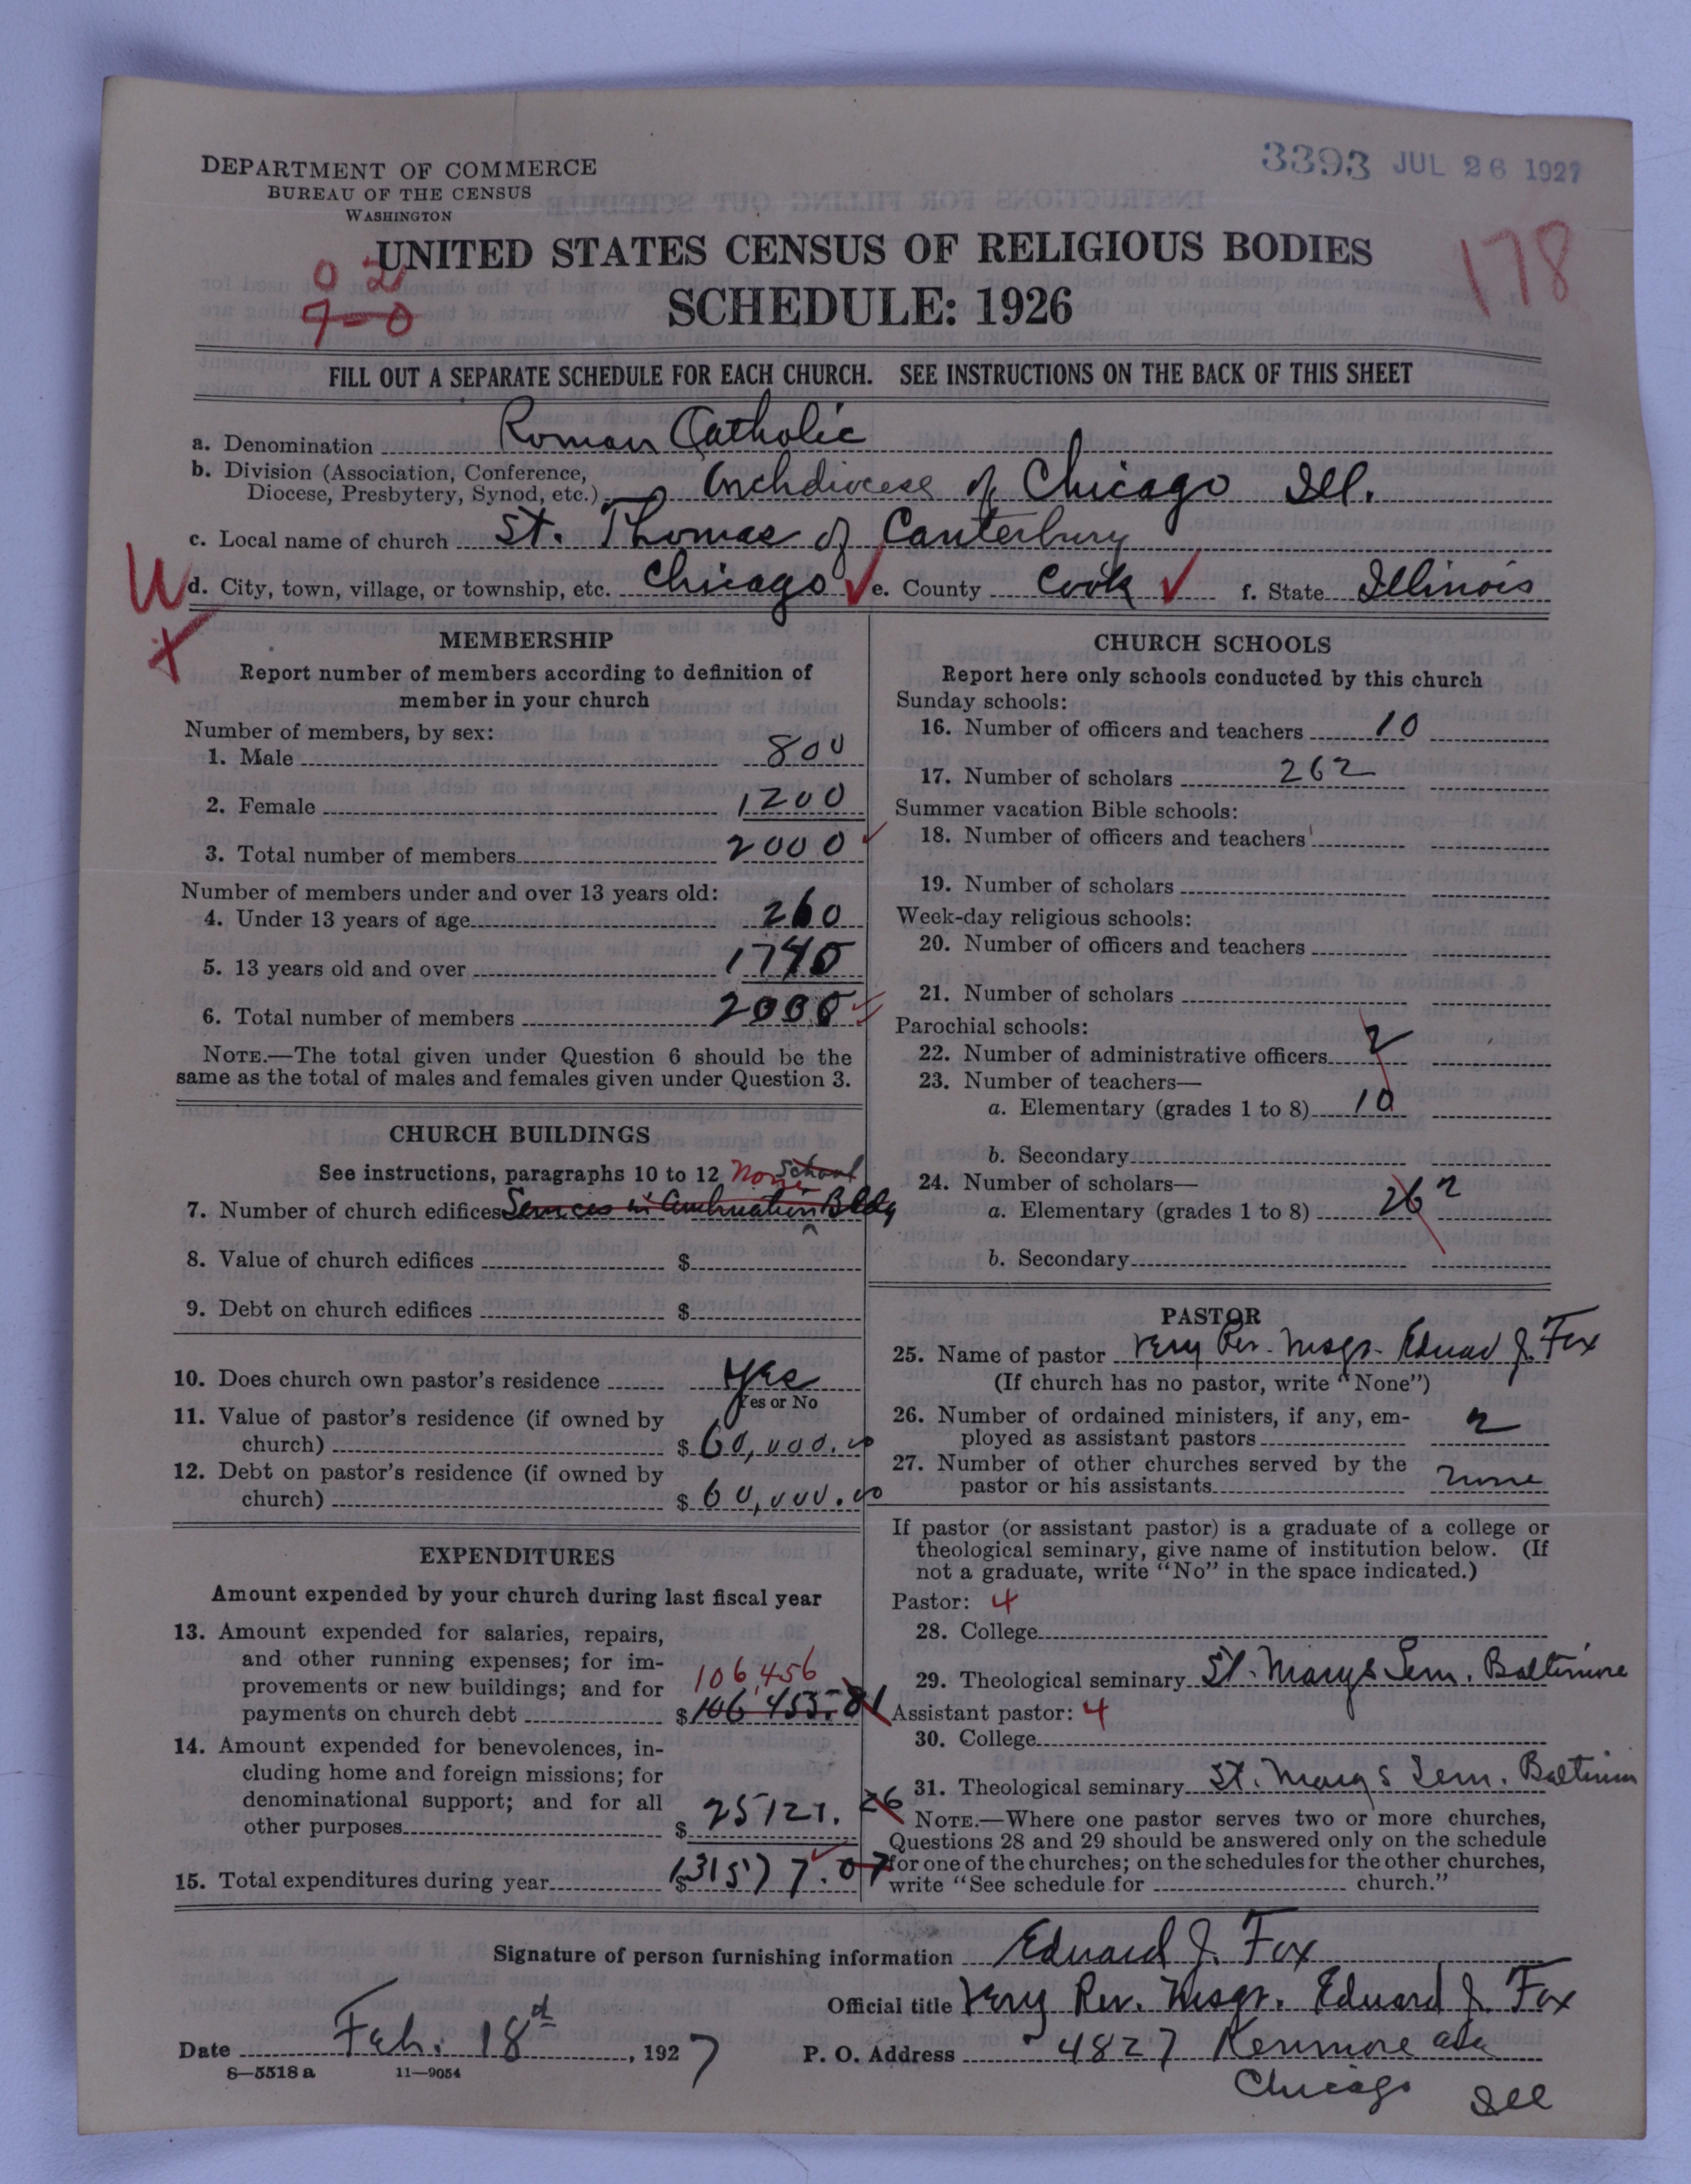 3393 JUL 26 1927
DEPARTMENT OF COMMERCE
BUREAU OF THE CENSUS
WASHINGTON
178
UNITED STATES CENSUS OF RELIGIOUS BODIES
0 2
7-0
SCHEDULE: 1926
FILL OUT A SEPARATE SCHEDULE FOR EACH CHURCH. SEE INSTRUCTIONS ON THE BACK OF THIS SHEET
a. Denomination Roman Catholic
b. Division (Association, Conference,
Diocese, Presbytery, Synod, etc.) Archdiocese of Chicago Ill.
c. Local name of church St. Thomas of Canterbury
W d. City, town, village, or township, etc. Chicago ✓ e. County Cook ✓ f. State Illinois
X
MEMBERSHIP
Report number of members according to definition of
member in your church
Number of members, by sex:
1. Male 800
2. Female 1200
3. Total number of members 2000
Number of members under and over 13 years old:
4. Under 13 years of age 260
5. 13 years old and over 1740
6. Total number of members 2000
NOTE.—The total given under Question 6 should be the
same as the total of males and females given under Question 3.
CHURCH BUILDINGS
See instructions, paragraphs 10 to 12 None School
7. Number of church edifices Services in Combination Bldg
8. Value of church edifices $
9. Debt on church edifices $
10. Does church own pastor's residence Yes
Yes or No
11. Value of pastor's residence (if owned by
church) $ 60,000.00
12. Debt on pastor's residence (if owned by
church) $ 60,000.00
EXPENDITURES
Amount expended by your church during last fiscal year
13. Amount expended for salaries, repairs,
and other running expenses; for im-
provements or new buildings; and for 106,456
payments on church debt $ 106 455.81
14. Amount expended for benevolences, in-
cluding home and foreign missions; for
denominational support; and for all
other purposes $ 25121.26
15. Total expenditures during year $ 131577.07
CHURCH SCHOOLS
Report here only schools conducted by this church
Sunday schools:
16. Number of officers and teachers 10
17. Number of scholars 262
Summer vacation Bible schools:
18. Number of officers and teachers
19. Number of scholars
Week-day religious schools:
20. Number of officers and teachers
21. Number of scholars
Parochial schools:
22. Number of administrative officers 2
23. Number of teachers—
a. Elementary (grades 1 to 8) 10
b. Secondary
24. Number of scholars—
a. Elementary (grades 1 to 8) 262
b. Secondary
PASTOR
25. Name of pastor Very Rev. Msgr. Edward J. Fox
(If church has no pastor, write "None")
26. Number of ordained ministers, if any, em-
ployed as assistant pastors 2
27. Number of other churches served by the
pastor or his assistants none
If pastor (or assistant pastor) is a graduate of a college or
theological seminary, give name of institution below. (If
not a graduate, write "No" in the space indicated.)
Pastor: 4
28. College
29. Theological seminary St. Marys Sem. Baltimore
Assistant pastor: 4
30. College
31. Theological seminary St. Marys Sem. Baltimore
NOTE.—Where one pastor serves two or more churches,
Questions 28 and 29 should be answered only on the schedule
for one of the churches; on the schedules for the other churches,
write "See schedule for church."
Signature of person furnishing information Edward J. Fox
Official title Very Rev. Msgr. Edward J. Fox
Date Feb. 18d, 1927 P. O. Address 4827 Kenmore ave
8—5518 a 11—9054
Chicago Ill